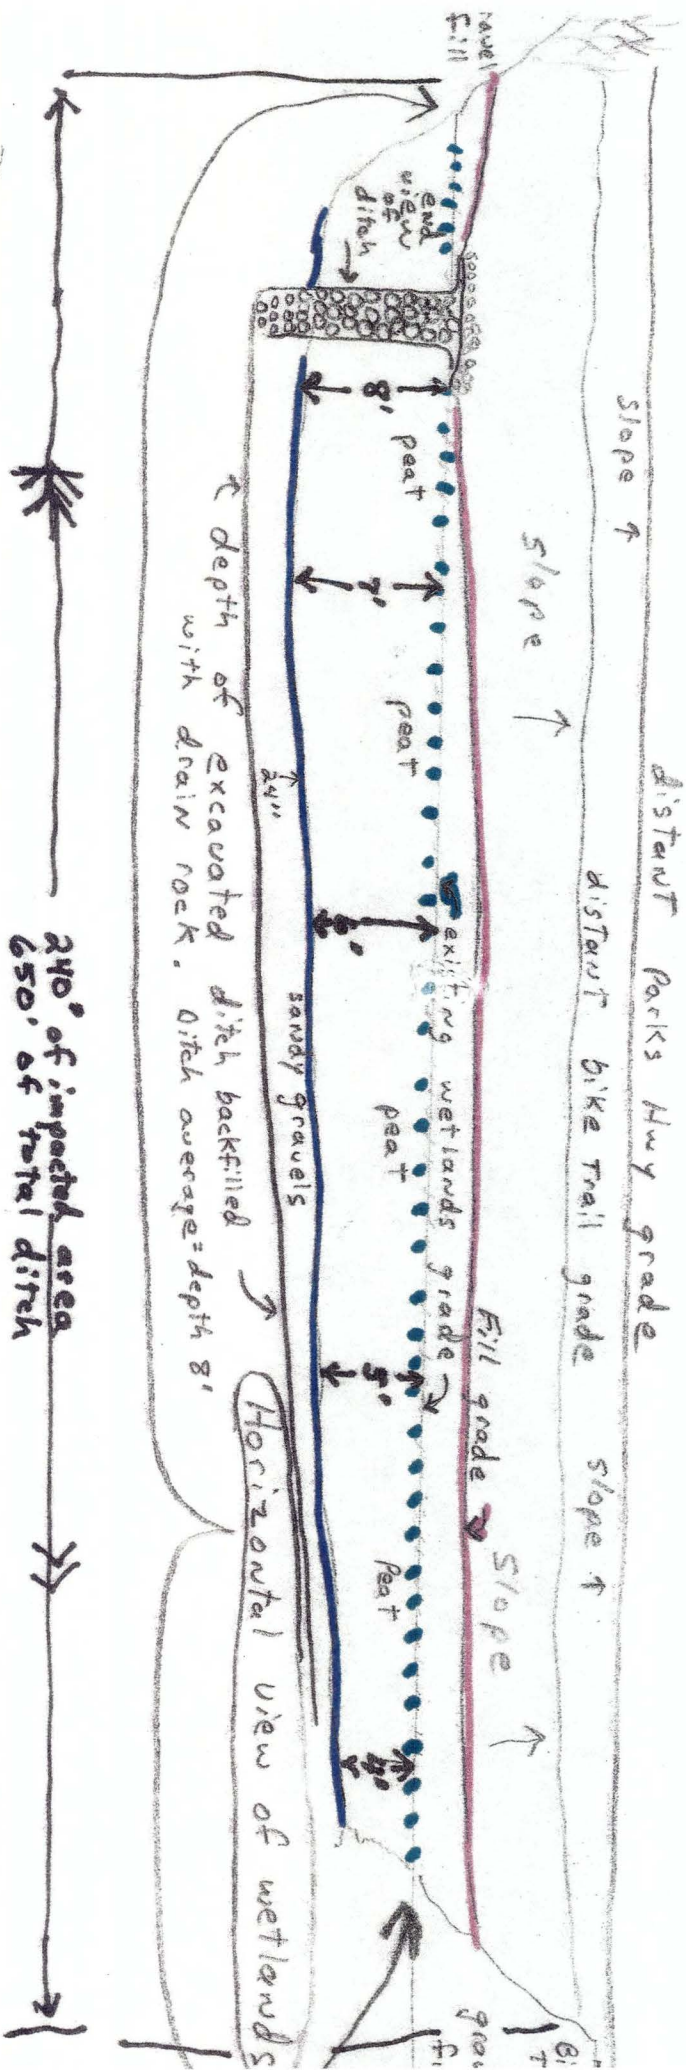 distant Parks Hwy grade
slope ↑
distant bike trail grade
slope ↑
slope ↑
slope ↑
Fill
end
view
of
ditch
Fill grade
existing wetlands grade
peat
peat
peat
Peat
8'
7'
5'
4'
24"
sandy gravels
depth of excavated ditch backfilled
with drain rock. Ditch average=depth 8'
Horizontal view of wetlands
240' of impacted area
650' of total ditch